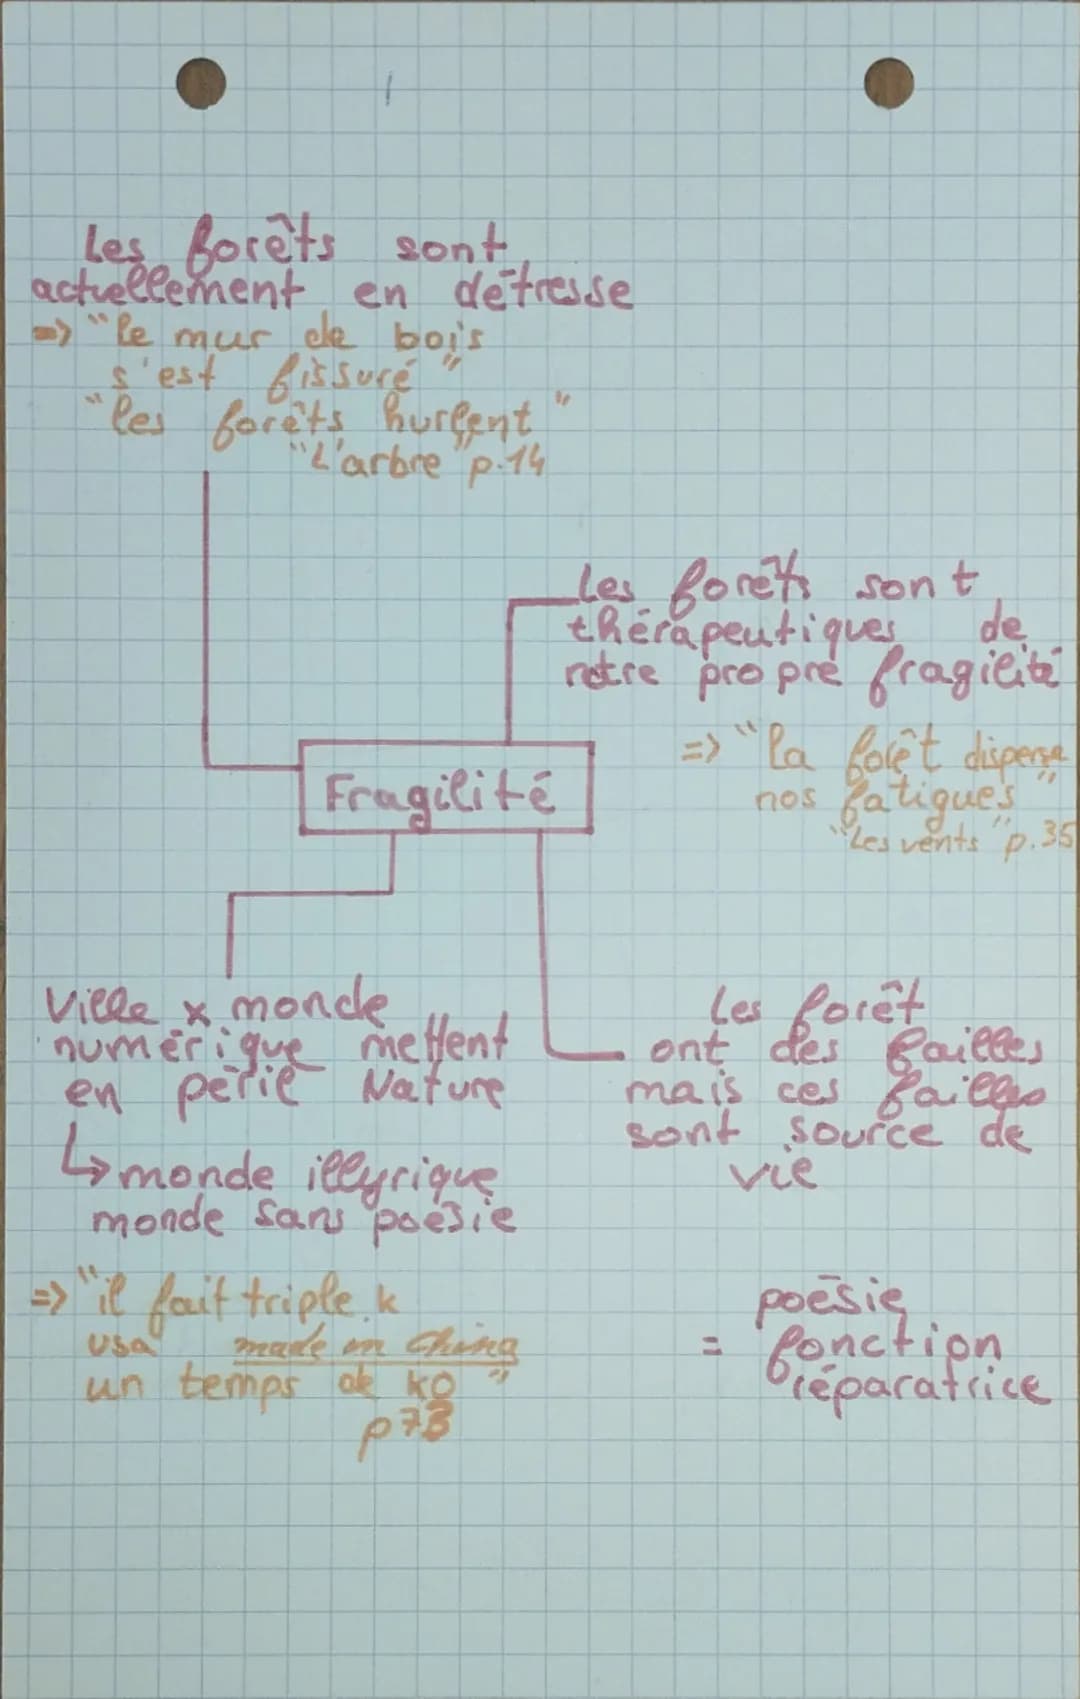 Les forêts sont
actuellement en détresse
=> "le mur de bois
s'est fissuré"
"les forêts hurlent"
"L'arbre" p.14
Les forêts sont
thérapeutiques de
notre propre fragilité
=> "la forêt disperse
nos fatigues"
"Les vents" p.35
Fragilité
Ville x monde
numérique mettent
en péril Nature
↳ monde illyrique
monde sans poésie
=> "il fait triple k
usa made in China
un temps de KO"
p73
Les forêt
ont des failles
mais ces failles
sont source de
vie
poésie
= fonction
réparatrice